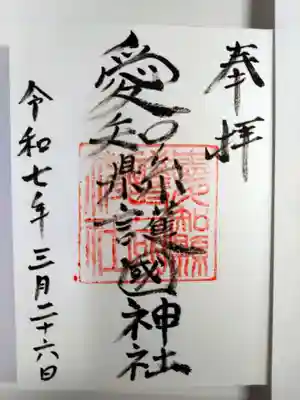 奉拝
愛知県護國神社
令和七年三月二十六日